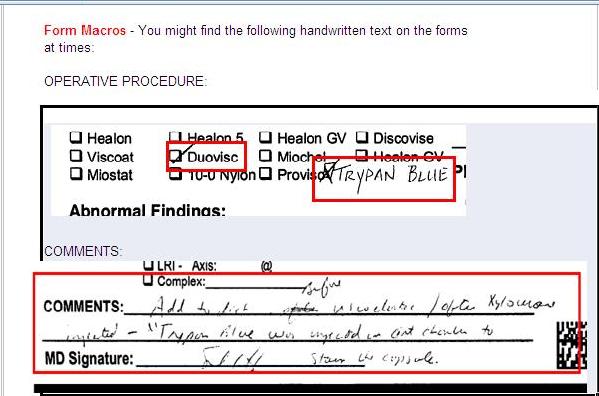 Form Macros - You might find the following handwritten text on the forms
at times:
OPERATIVE PROCEDURE:
Healon Healon 5 Healon GV Discovise
Viscoat Duovisc Miochol Healon GV
Miostat 10-0 Nylon Provisc TRYPAN BLUE
Abnormal Findings:
COMMENTS:
LRI - Axis: @
Complex:
Before
COMMENTS: Add to dict viscoelastic / after Xylocaine
injected - "Trypan Blue was injected in ant chamber to
MD Signature: Stain the capsule.